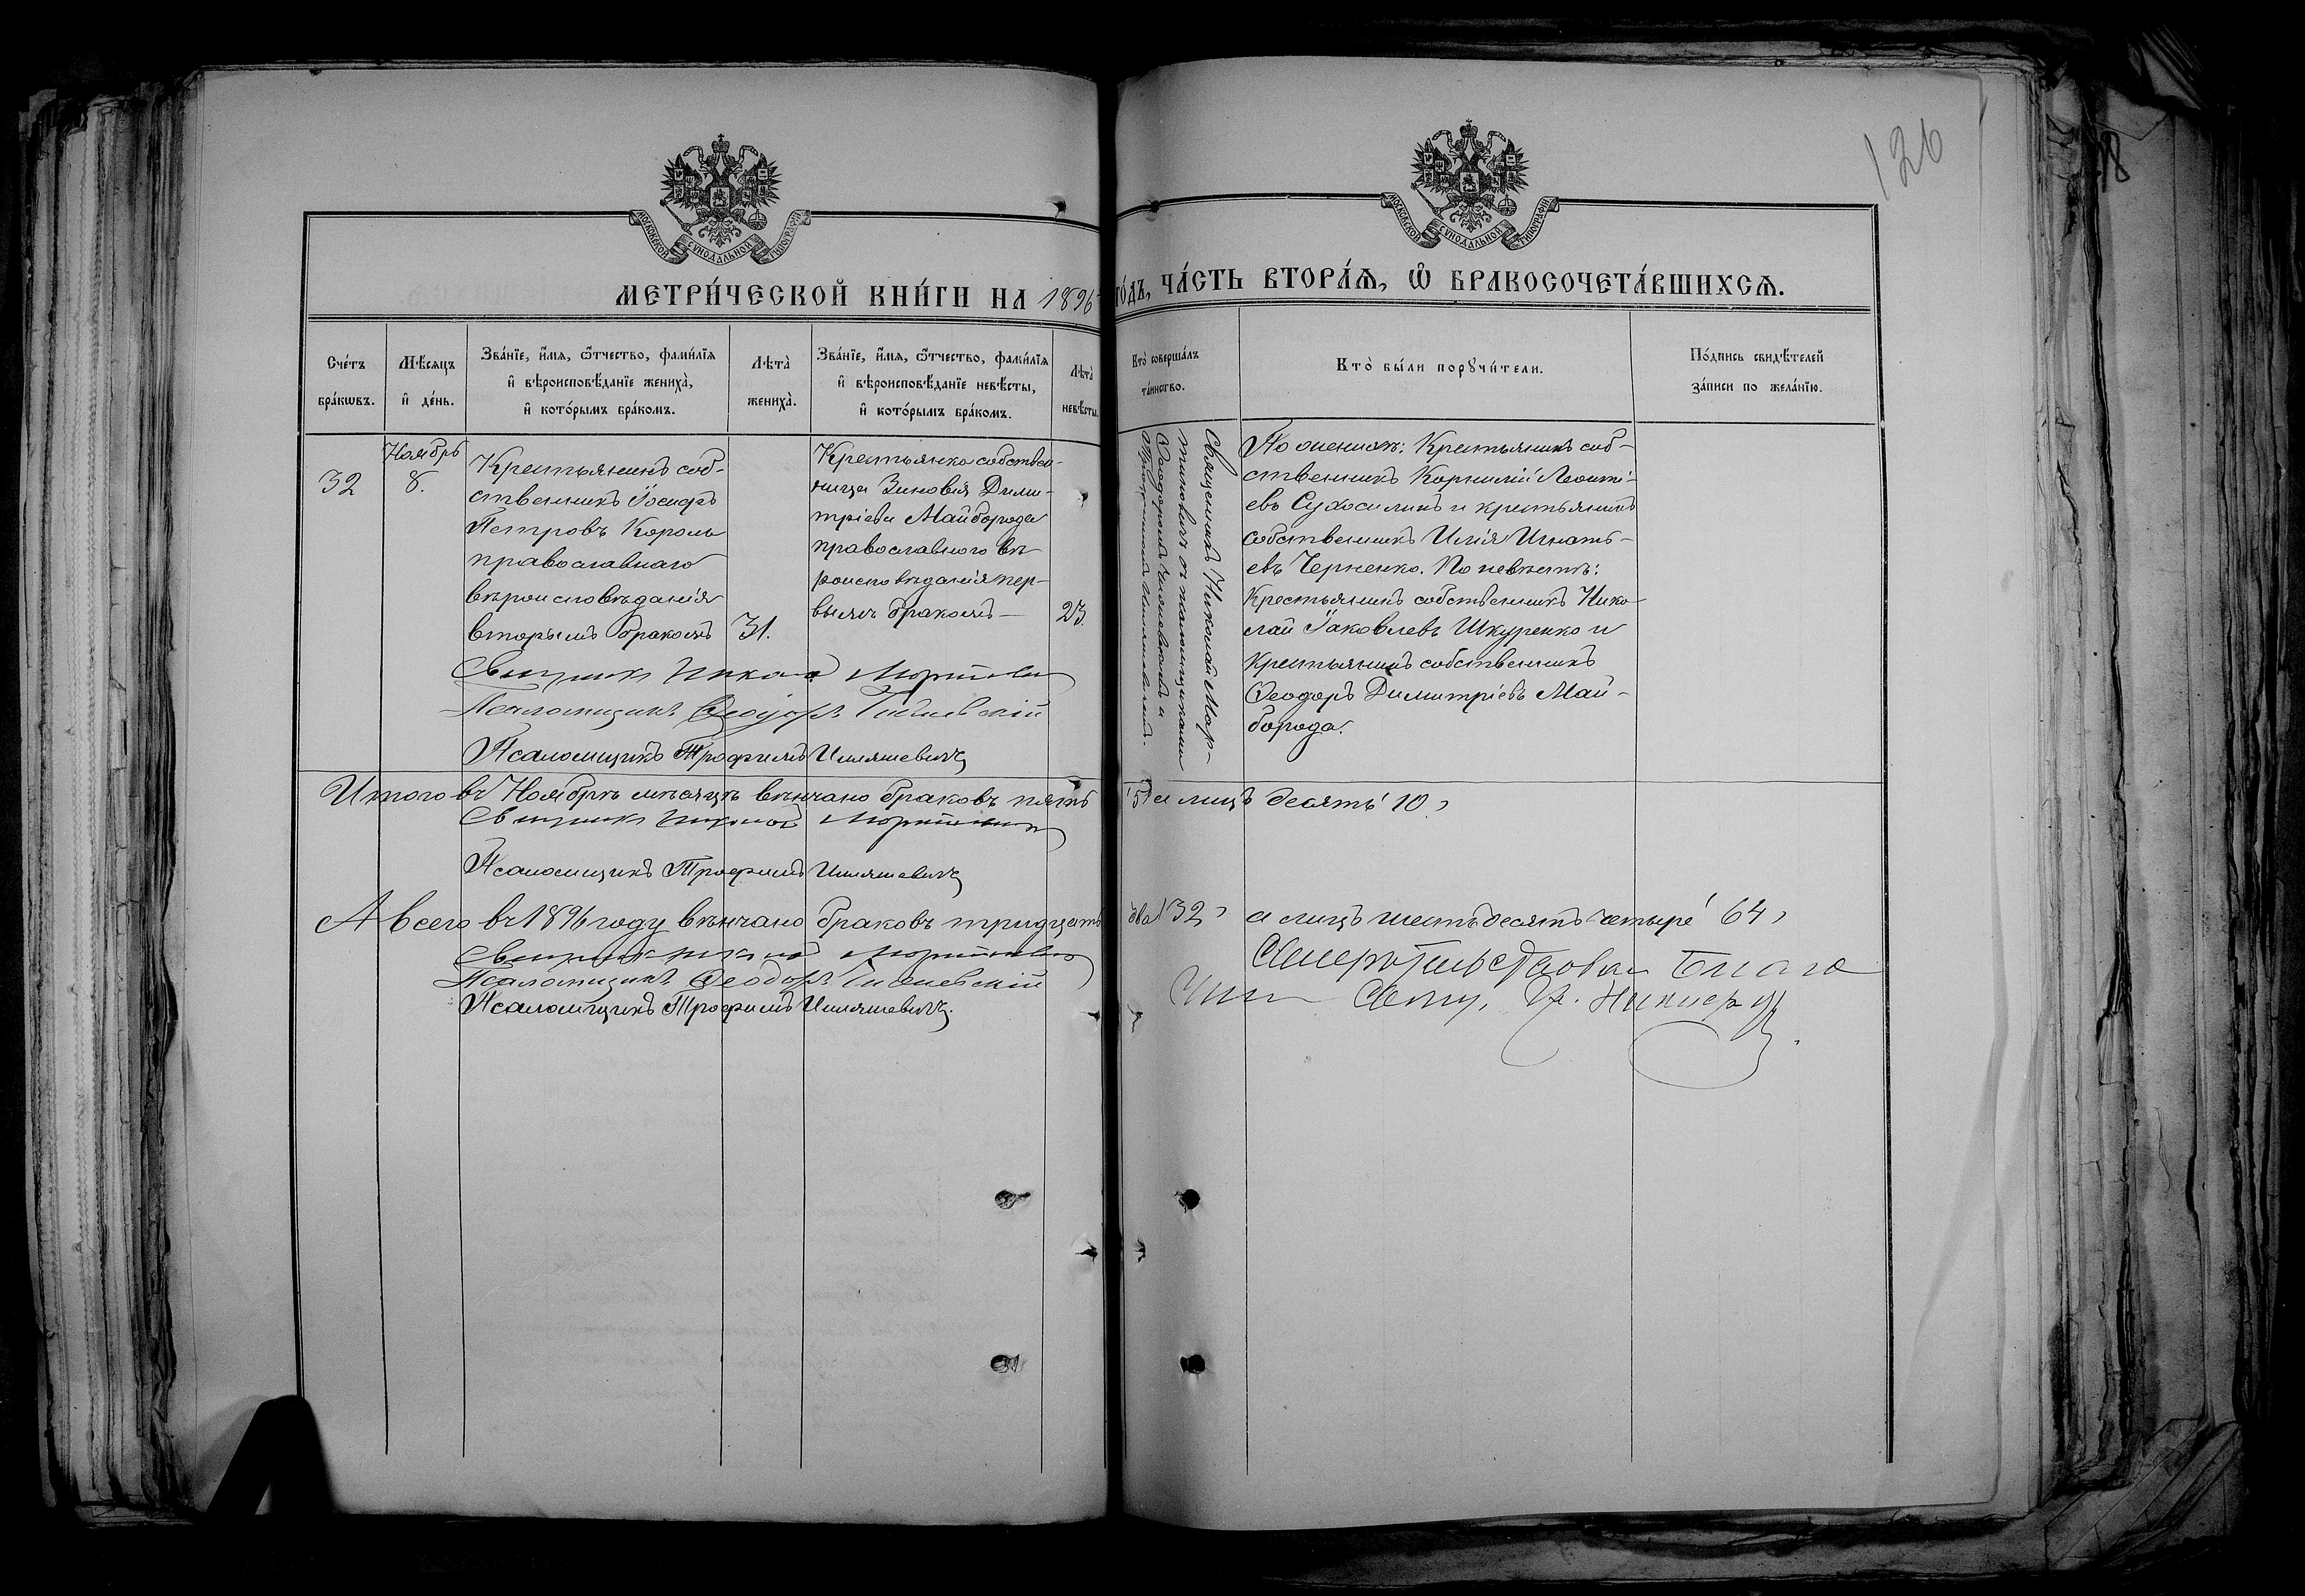 126
МОСКОВСКОЙ СУНОДАЛЬНОЙ ТИПОГРАФІИ
МОСКОВСКОЙ СУНОДАЛЬНОЙ ТИПОГРАФІИ
МЕТРИ́ЧЕСКОЙ КНИ́ГИ НА 1896 ГО́ДЪ, ЧА́СТЬ ВТОРА́Ѧ, Ѽ БРАКОСОЧЕТА́ВШИХСѦ.
Сче́тъ
бра́кωвъ.
Мѣ́сяцъ
и҆ де́нь.
Зва́нїе, и҆́мѧ, ѻ҆́тчество, фами́лїѧ
и҆ вѣроисповѣ́данїе жениха̀,
и҆ кото́рымъ бра́комъ.
Лѣта̀
жениха̀.
Зва́нїе, и҆́мѧ, ѻ҆́тчество, фами́лїѧ
и҆ вѣроисповѣ́данїе невѣ́сты,
и҆ кото́рымъ бра́комъ.
Лѣта̀
невѣ́сты.
Кто̀ соверша́лъ
та́инство.
Кто̀ бы́ли порꙋчи́тели.
По́дпись свидѣ́телей
за́писи по жела́нїю.
32
Ноябрь
8.
Крестьянинъ соб-
ственникъ Іосифъ
Петровъ Король
православнаго
вѣроисповѣданія
вторымъ бракомъ
31.
Крестьянка собствен-
ница Зиновія Дими-
тріева Майборода
православного вѣ-
роисповѣданія пер-
вымъ бракомъ —
23.
Священникъ Николай Мар-
тиновичъ съ псаломщиками
Феодоромъ и
По женихѣ: Крестьянинъ соб-
ственникъ Корнилій Леонті-
евъ Сухосилинъ и крестьянинъ
собственникъ Илія Игнать-
евъ Черненко. По невѣстѣ:
Крестьянинъ собственникъ Нико-
лай Іаковлевъ Шкуренко и
Крестьянинъ собственникъ
Феодоръ Димитріевъ Май-
борода.
Священникъ Николай Мартинович
Псаломщикъ Феодоръ
Псаломщикъ Трофимъ Илляшевичъ
Итого въ Ноябрѣ мѣсяцѣ вѣнчано браковъ пять 5, а лицъ десять 10,
Священникъ Николай Мартинович
Псаломщикъ Трофимъ Илляшевичъ
А всего въ 1896 году вѣнчано браковъ тридцать два 32, а лицъ шестьдесятъ четыре 64,
Священникъ Николай Мартинович
Псаломщикъ Феодоръ
Псаломщикъ Трофимъ Илляшевичъ.